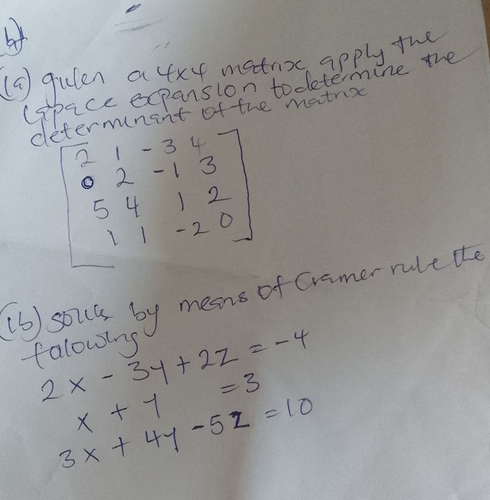 b)
(a) given a 4x4 matrix apply the
lapace expansion to determine the
determinant of the matrix
2 1 -3 4
0 2 -1 3
5 4 1 2
1 1 -2 0
(b) solve by means of Cramer rule the
falowing
2x - 3y + 2z = -4
x + y = 3
3x + 4y - 5z = 10